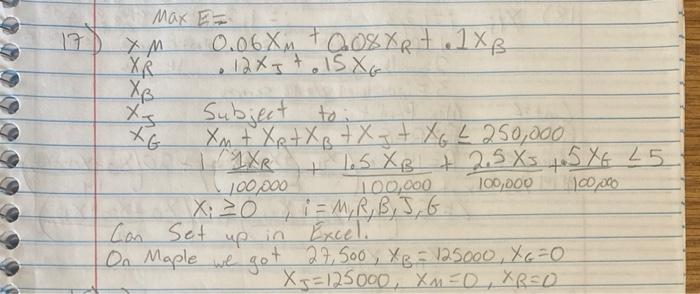 Max E=
17) XM 0.06XM + 0.08XR + .1XB
XR .12XJ + .15XG
XB
XJ Subject to:
XG XM + XR + XB + XJ + XG ≤ 250,000
1XR/100,000 + 1.5XB/100,000 + 2.5XJ/100,000 + .5XG/100,000 ≤ 5
Xi ≥ 0, i = M, R, B, J, G
Can Set up in Excel.
On Maple we got 27,500, XB = 125000, XG = 0
XJ = 125000, XM = 0, XR = 0